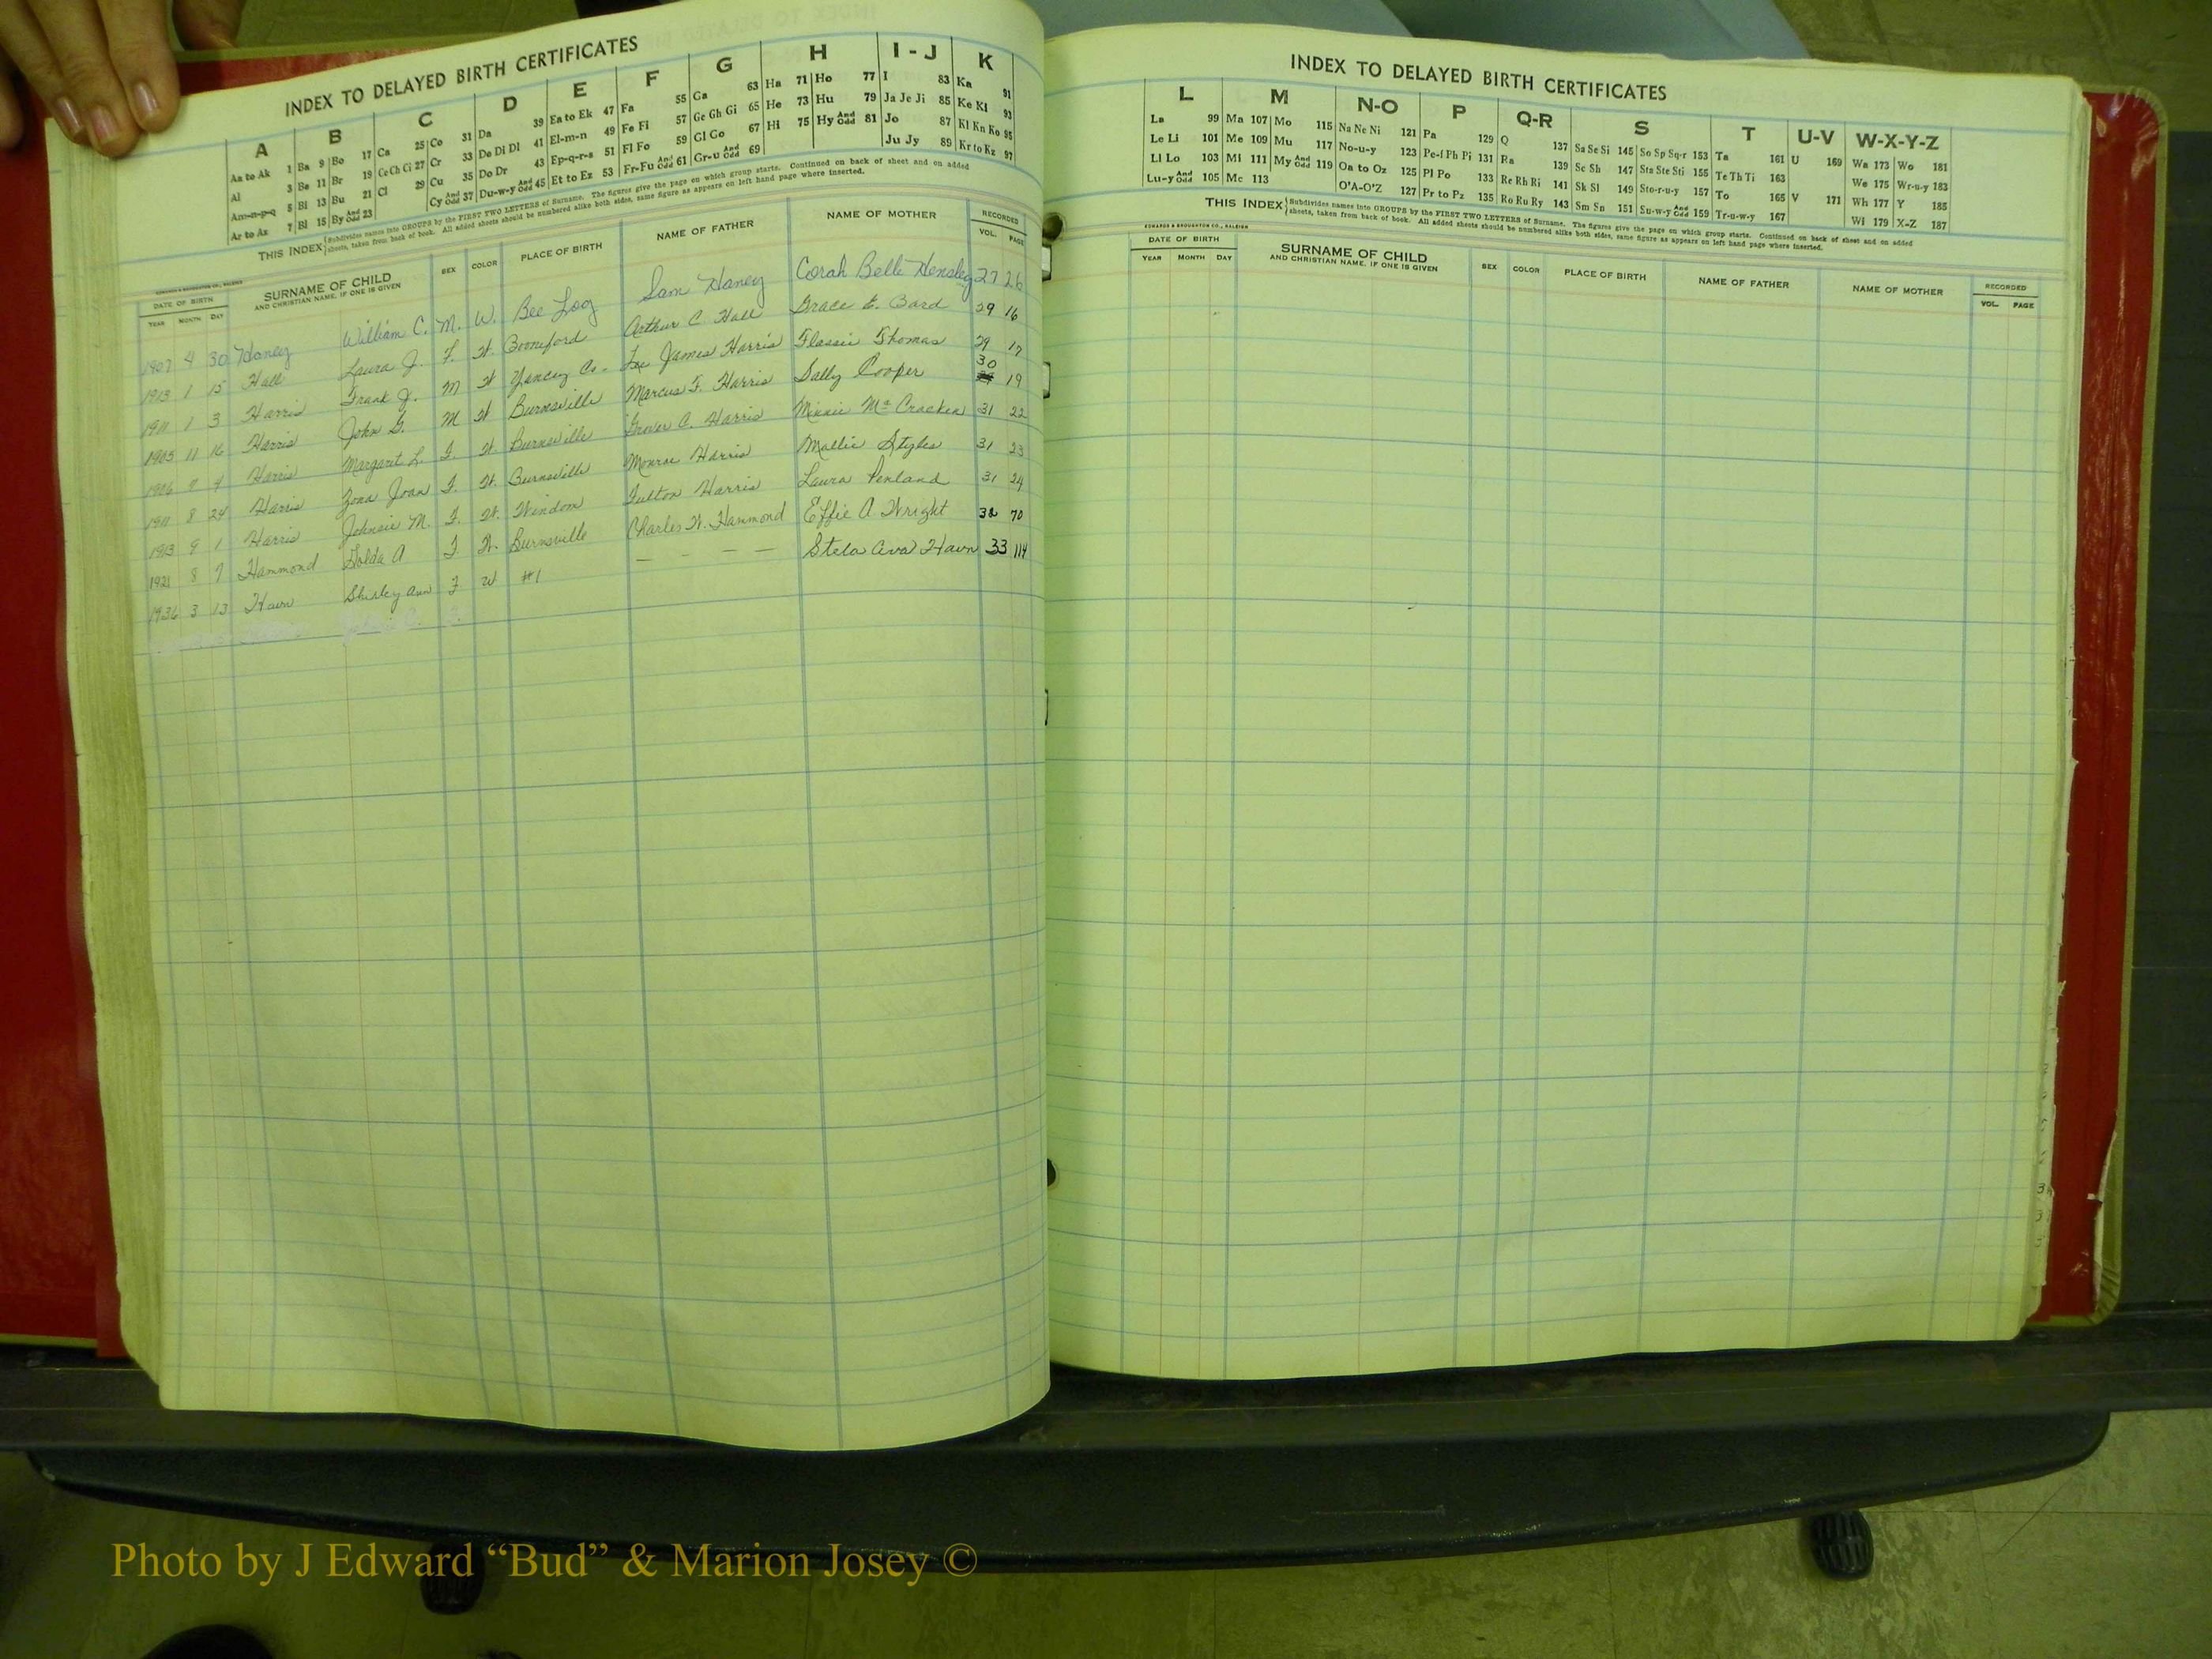 INDEX TO DELAYED BIRTH CERTIFICATES
A B C D E F G H I - J K
Aa to Ak 1 Ba 9 Bo 17 Ca 25 Co 31 Da 39 Ea to Ek 47 Fa 55 Ga 63 Ha 71 Ho 77 I 83 Ka 91
Al 3 Be 11 Br 19 Ce Ch Ci 27 Cr 33 De Di Dl 41 El-m-n 49 Fe Fi 57 Ge Gh Gi 65 He 73 Hu 79 Ja Je Ji 85 Ke Ki 93
Am-n-p-q 5 Bi 13 Bu 21 Cl 29 Cu 35 Do Dr 43 Ep-q-r-s 51 Fl Fo 59 Gl Go 67 Hi 75 Hy And Odd 81 Jo 87 Kl Kn Ko 95
Ar to Az 7 Bl 15 By And Odd 23 Cy And Odd 37 Du-w-y And Odd 45 Et to Ez 53 Fr-Fu And Odd 61 Gr-u And Odd 69 Ju Jy 89 Kr to Kz 97
THIS INDEX Subdivides names into GROUPS by the FIRST TWO LETTERS of Surname. The figures give the page on which group starts. Continued on back of sheet and on added
sheets, taken from back of book. All added sheets should be numbered alike both sides, same figure as appears on left hand page where inserted.
EDWARDS & BROUGHTON CO., RALEIGH
DATE OF BIRTH SURNAME OF CHILD SEX COLOR PLACE OF BIRTH NAME OF FATHER NAME OF MOTHER RECORDED
YEAR MONTH DAY AND CHRISTIAN NAME, IF ONE IS GIVEN VOL. PAGE
1907 4 30 Haney William C. M. W. Bee Log Sam Haney Corah Belle Hensley 27 26
1913 1 15 Hall Laura J. F. W. Booneford Arthur C Hall Grace E. Bard 29 16
1911 1 3 Harris Frank J. M W Yancey Co. Lee James Harris Flassie Thomas 29 17
1905 11 16 Harris John G. M W Burnsville Marcus F. Harris Sally Cooper 30 19
1906 9 4 Harris Margaret L F. W. Burnsville Grover C. Harris Minnie McCracken 31 22
1911 8 24 Harris Zona Joan F. W. Burnsville Monroe Harris Mollie Styles 31 23
1913 9 1 Harris Johnsie M. F. W. Windom Fulton Harris Laura Penland 31 24
1921 8 7 Hammond Golda A F W. Burnsville Charles W. Hammond Effie A Wright 32 70
1936 3 13 Haun Shirley Ann F W #1 — - - — Stela Ava Haun 33 114
INDEX TO DELAYED BIRTH CERTIFICATES
L M N-O P Q-R S T U-V W-X-Y-Z
La 99 Ma 107 Mo 115 Na Ne Ni 121 Pa 129 Q 137 Sa Se Si 145 So Sp Sq-r 153 Ta 161 U 169 Wa 173 Wo 181
Le Li 101 Me 109 Mu 117 No-u-y 123 Pe-f Ph Pi 131 Ra 139 Sc Sh 147 Sta Ste Sti 155 Te Th Ti 163 We 175 Wr-u-y 183
Ll Lo 103 Mi 111 My And Odd 119 Oa to Oz 125 Pl Po 133 Re Rh Ri 141 Sk Sl 149 Sto-r-u-y 157 To 165 V 171 Wh 177 Y 185
Lu-y And Odd 105 Mc 113 O'A-O'Z 127 Pr to Pz 135 Ro Ru Ry 143 Sm Sn 151 Su-w-y And Odd 159 Tr-u-w-y 167 Wi 179 X-Z 187
THIS INDEX Subdivides names into GROUPS by the FIRST TWO LETTERS of Surname. The figures give the page on which group starts. Continued on back of sheet and on added
sheets, taken from back of book. All added sheets should be numbered alike both sides, same figure as appears on left hand page where inserted.
EDWARDS & BROUGHTON CO., RALEIGH
DATE OF BIRTH SURNAME OF CHILD SEX COLOR PLACE OF BIRTH NAME OF FATHER NAME OF MOTHER RECORDED
YEAR MONTH DAY AND CHRISTIAN NAME, IF ONE IS GIVEN VOL. PAGE
Photo by J Edward “Bud” & Marion Josey ©